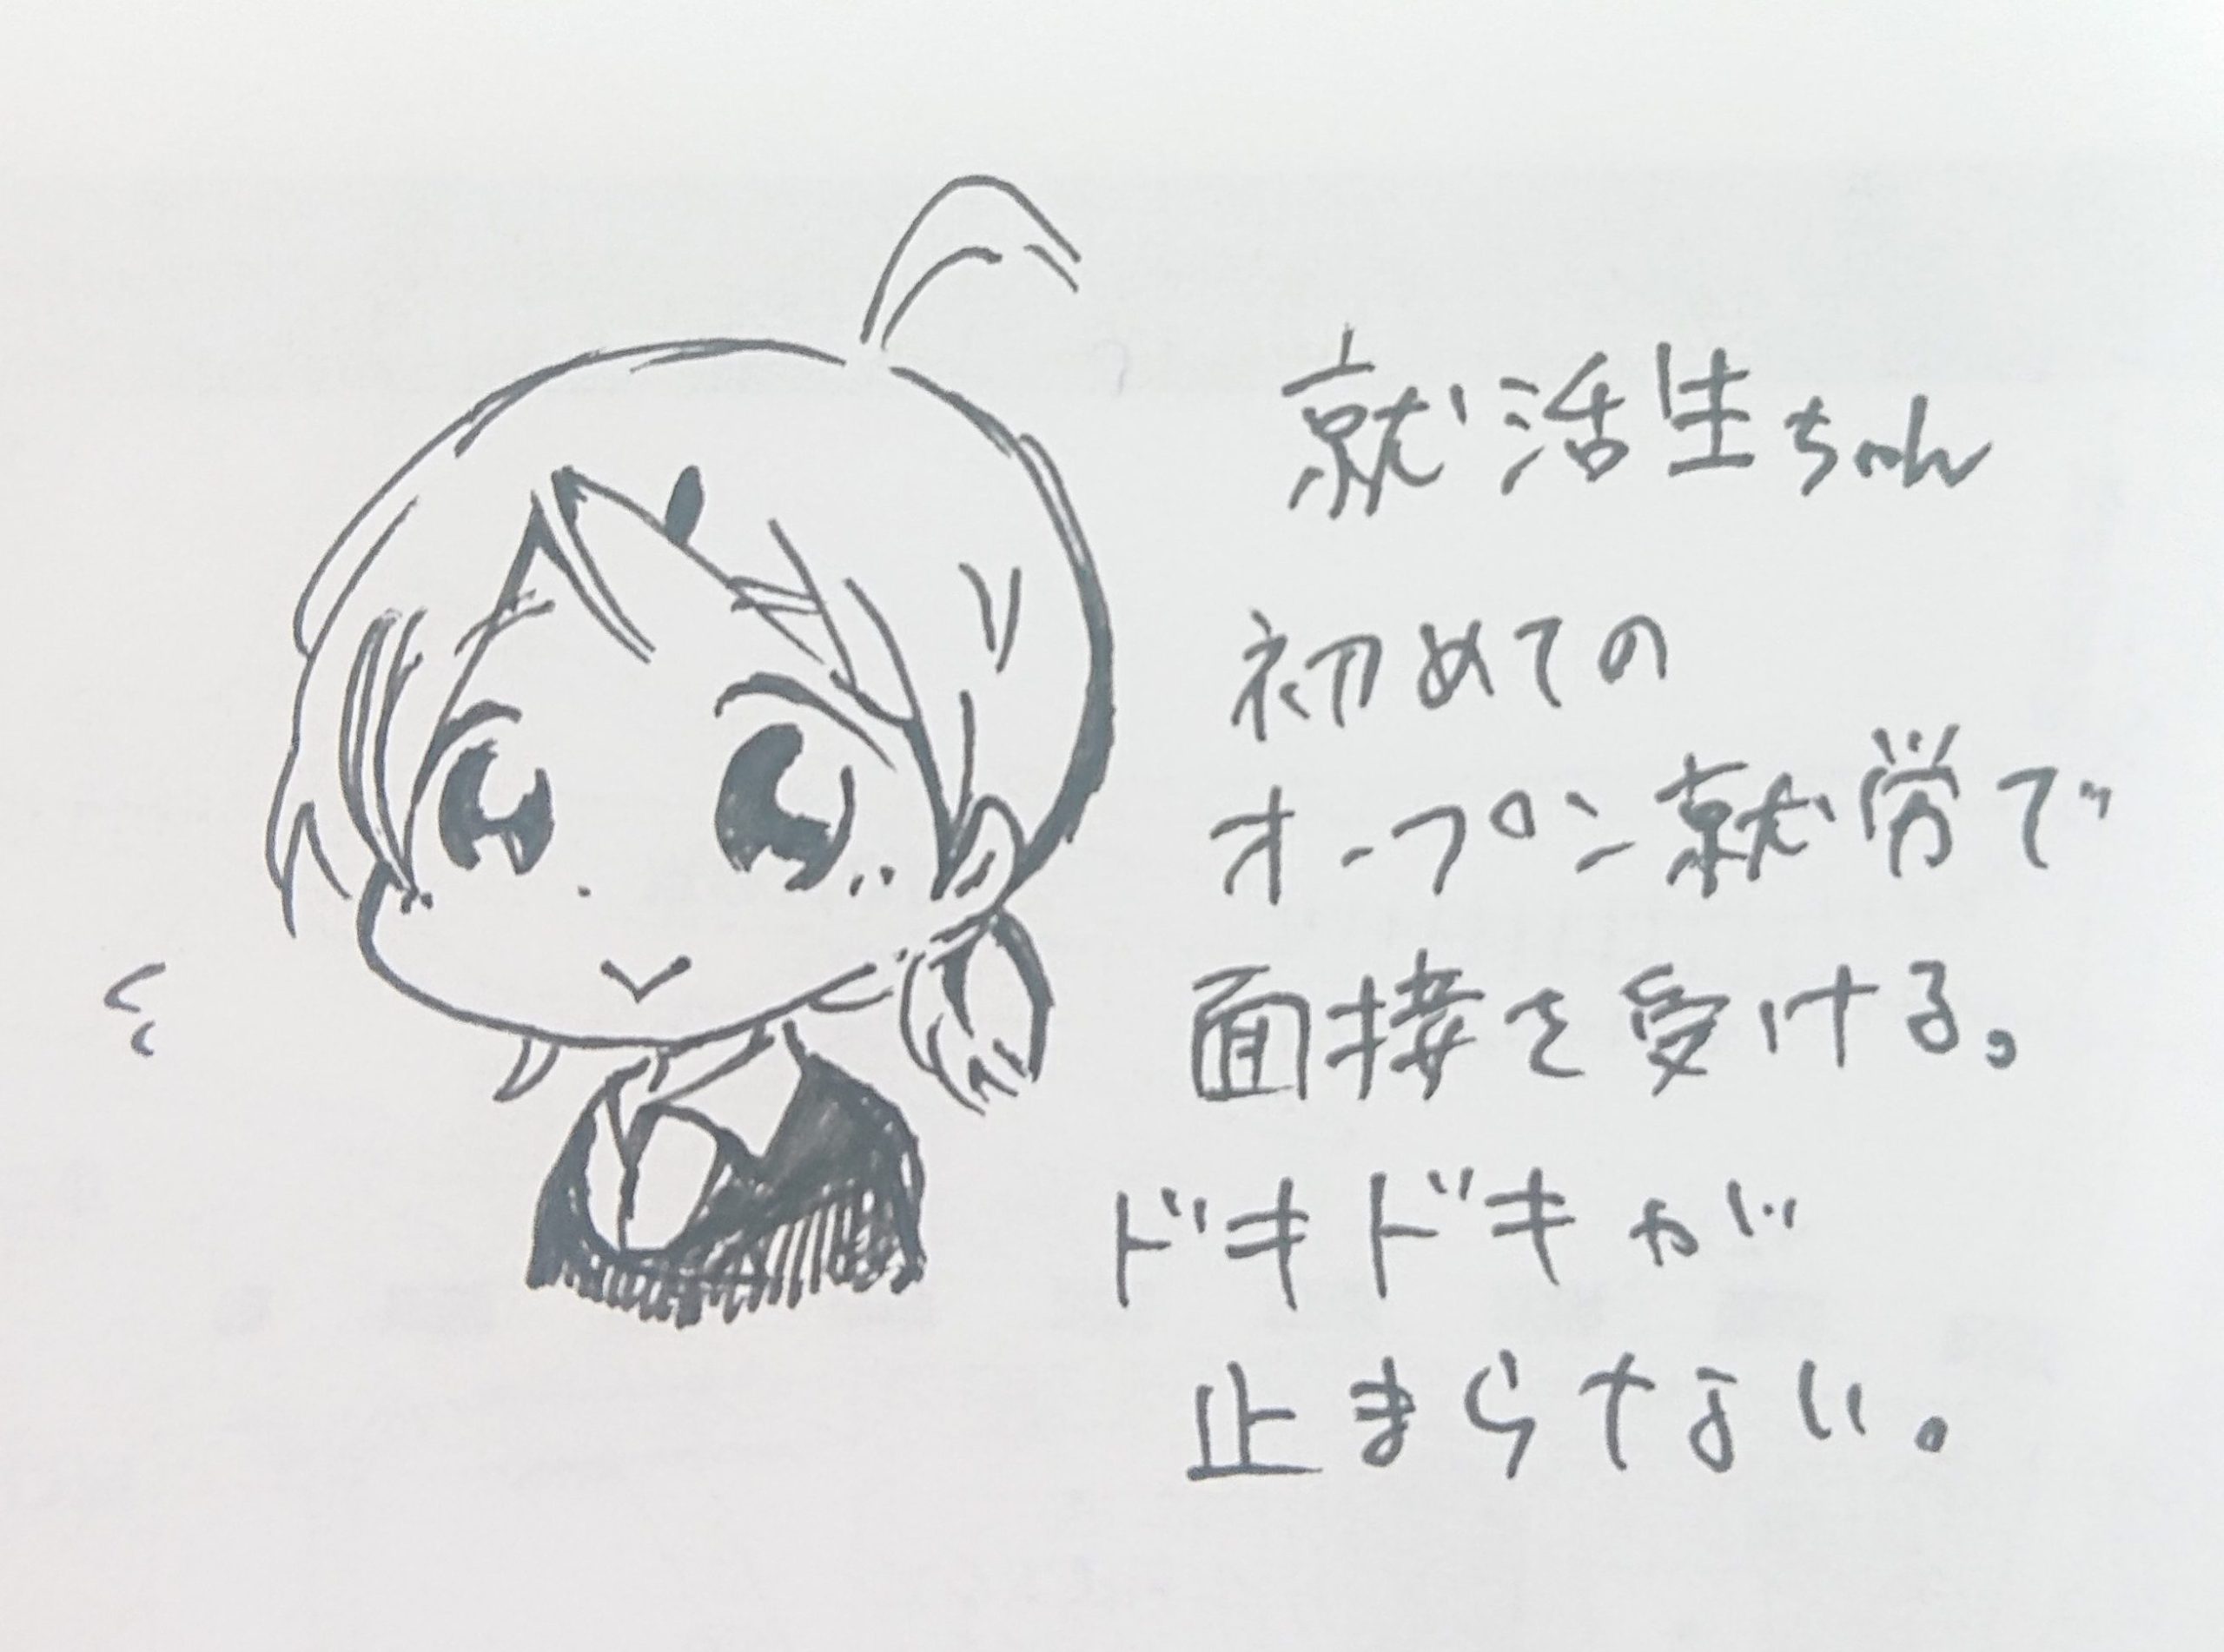 就活生ちゃん
初めての
オープン就労で
面接を受ける。
ドキドキが
止まらない。